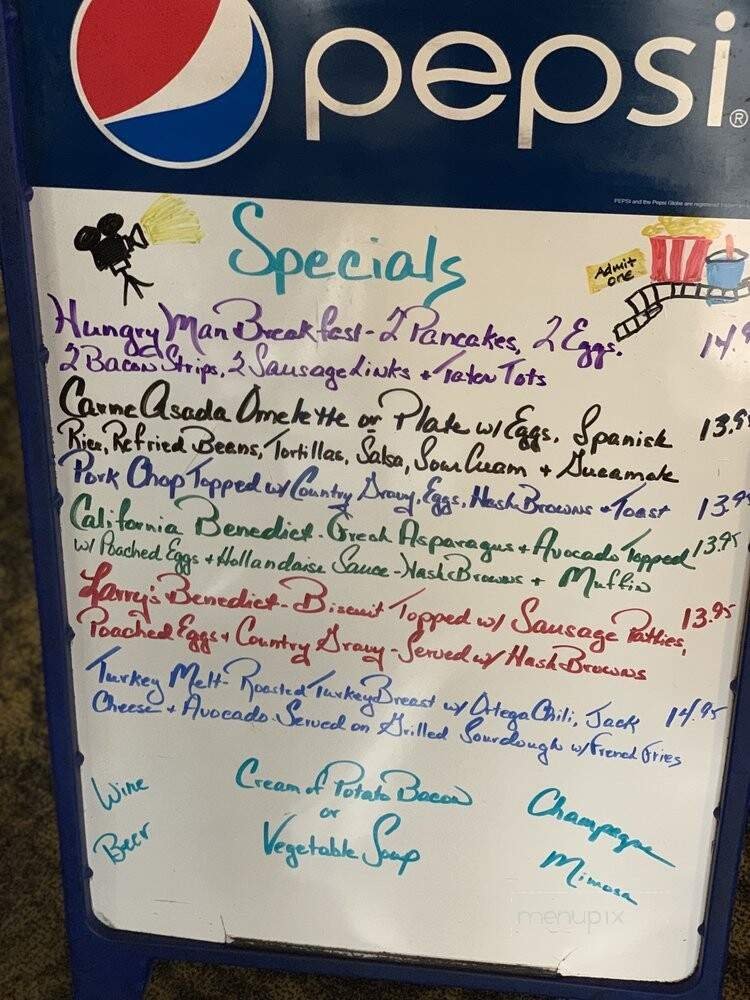 pepsi®
PEPSI and the Pepsi Globe are registered
Specials
Admit one
Hungry Man Breakfast - 2 Pancakes, 2 Eggs. 14.9
2 Bacon Strips, 2 Sausage Links + Tater Tots
Carne Asada Omelette or Plate w/ Eggs, Spanish 13.9
Rice, Refried Beans, Tortillas, Salsa, Sour Cream + Guacamole
Pork Chop Topped w/ Country Gravy, Eggs, Hash Browns + Toast 13.9
California Benedict - Fresh Asparagus + Avocado Topped 13.95
w/ Poached Eggs + Hollandaise Sauce - Hash Browns + Muffin
Larry's Benedict - Biscuit Topped w/ Sausage Patties, 13.95
Poached Eggs + Country Gravy - Served w/ Hash Browns
Turkey Melt - Roasted Turkey Breast w/ Ortega Chili, Jack 14.95
Cheese + Avocado Served on Grilled Sourdough w/ French Fries
Wine Cream of Potato Bacon Champagne
or
Beer Vegetable Soup Mimosa
menupix